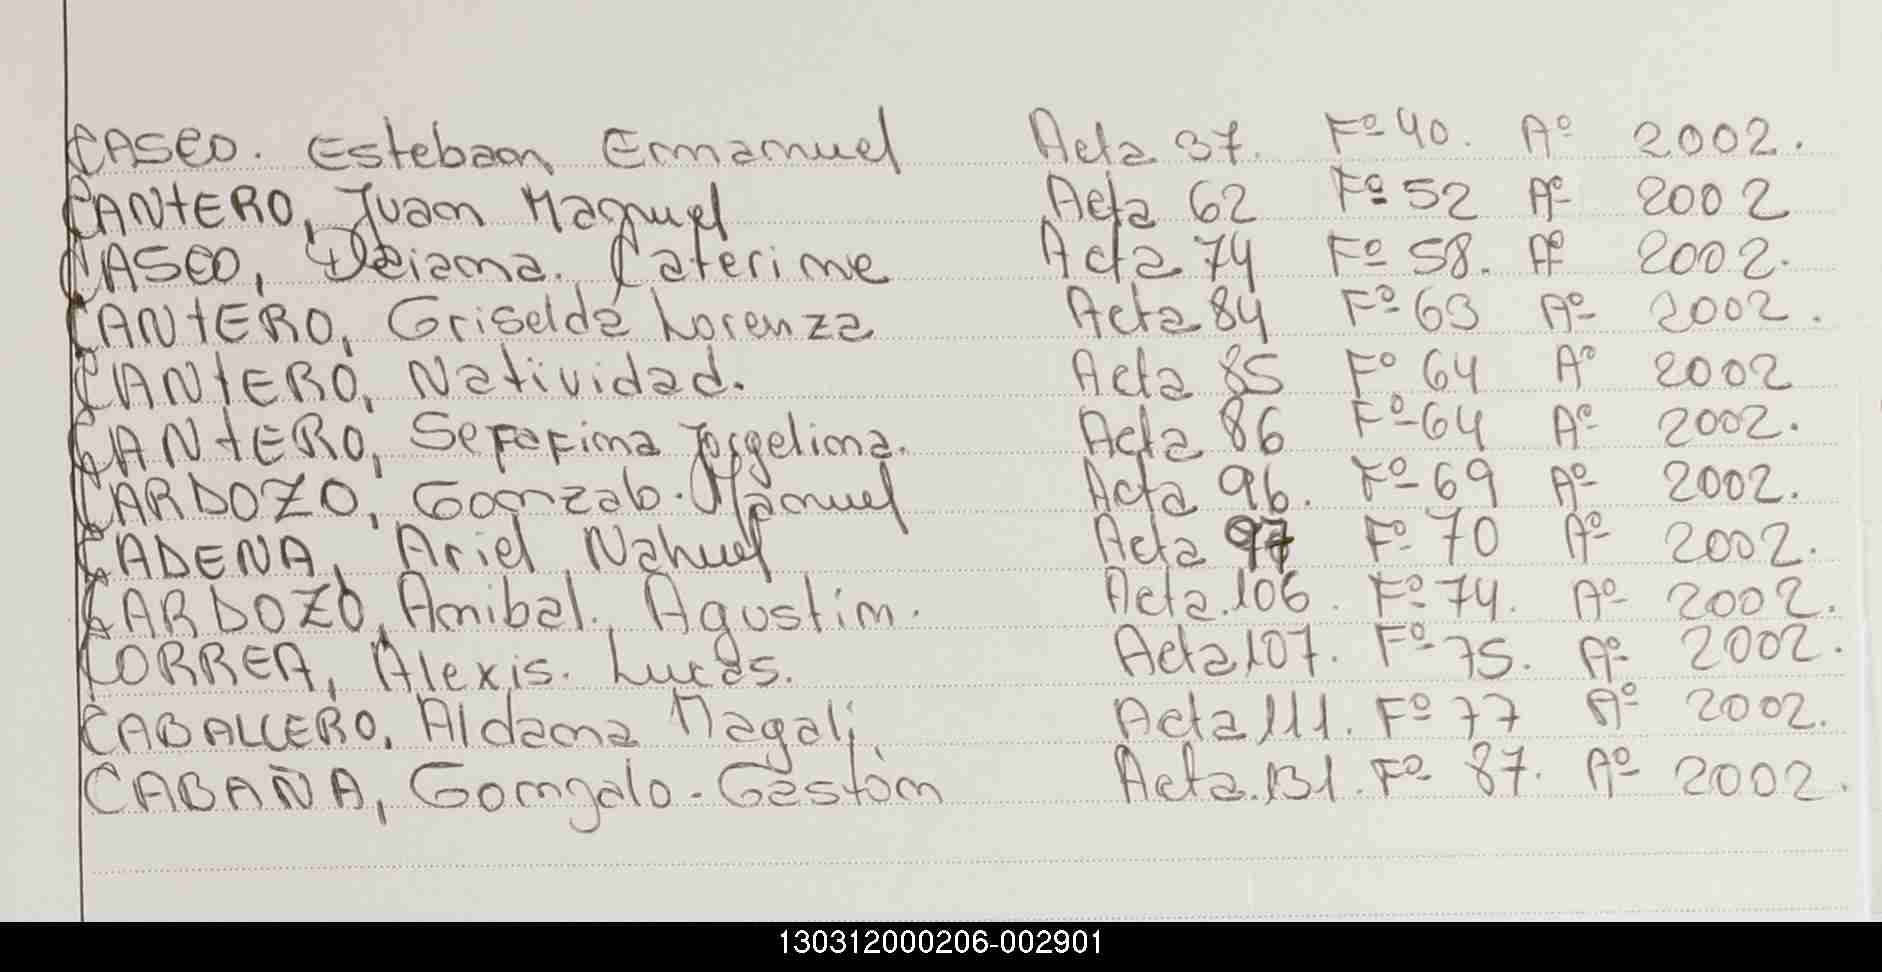 CASCO. Esteban Emmanuel Acta 37. Fº 40. Aº 2002.
CANTERO, Juan Magnuel Acta 62 Fº 52 Aº 2002
CASCO, Daiana. Caterine Acta 74 Fº 58. Aº 2002.
CANTERO, Griselda Lorenza Acta 84 Fº 63 Aº 2002.
CANTERO, Natividad. Acta 85 Fº 64 Aº 2002
CANTERO, Serafina Jorgelina. Acta 86 Fº 64 Aº 2002.
CARDOZO, Gonzalo. Manuel Acta 96. Fº 69 Aº 2002.
CADENA, Ariel Nahuel Acta 97 Fº 70 Aº 2002.
CARDOZO, Anibal. Agustin. Acta 106. Fº 74. Aº 2002.
CORREA, Alexis. Lucas. Acta 107. Fº 75. Aº 2002.
CABALLERO, Aldana Magali, Acta 111. Fº 77 Aº 2002.
CABAÑA, Gonzalo. Gastón Acta 131. Fº 87. Aº 2002.
130312000206-002901